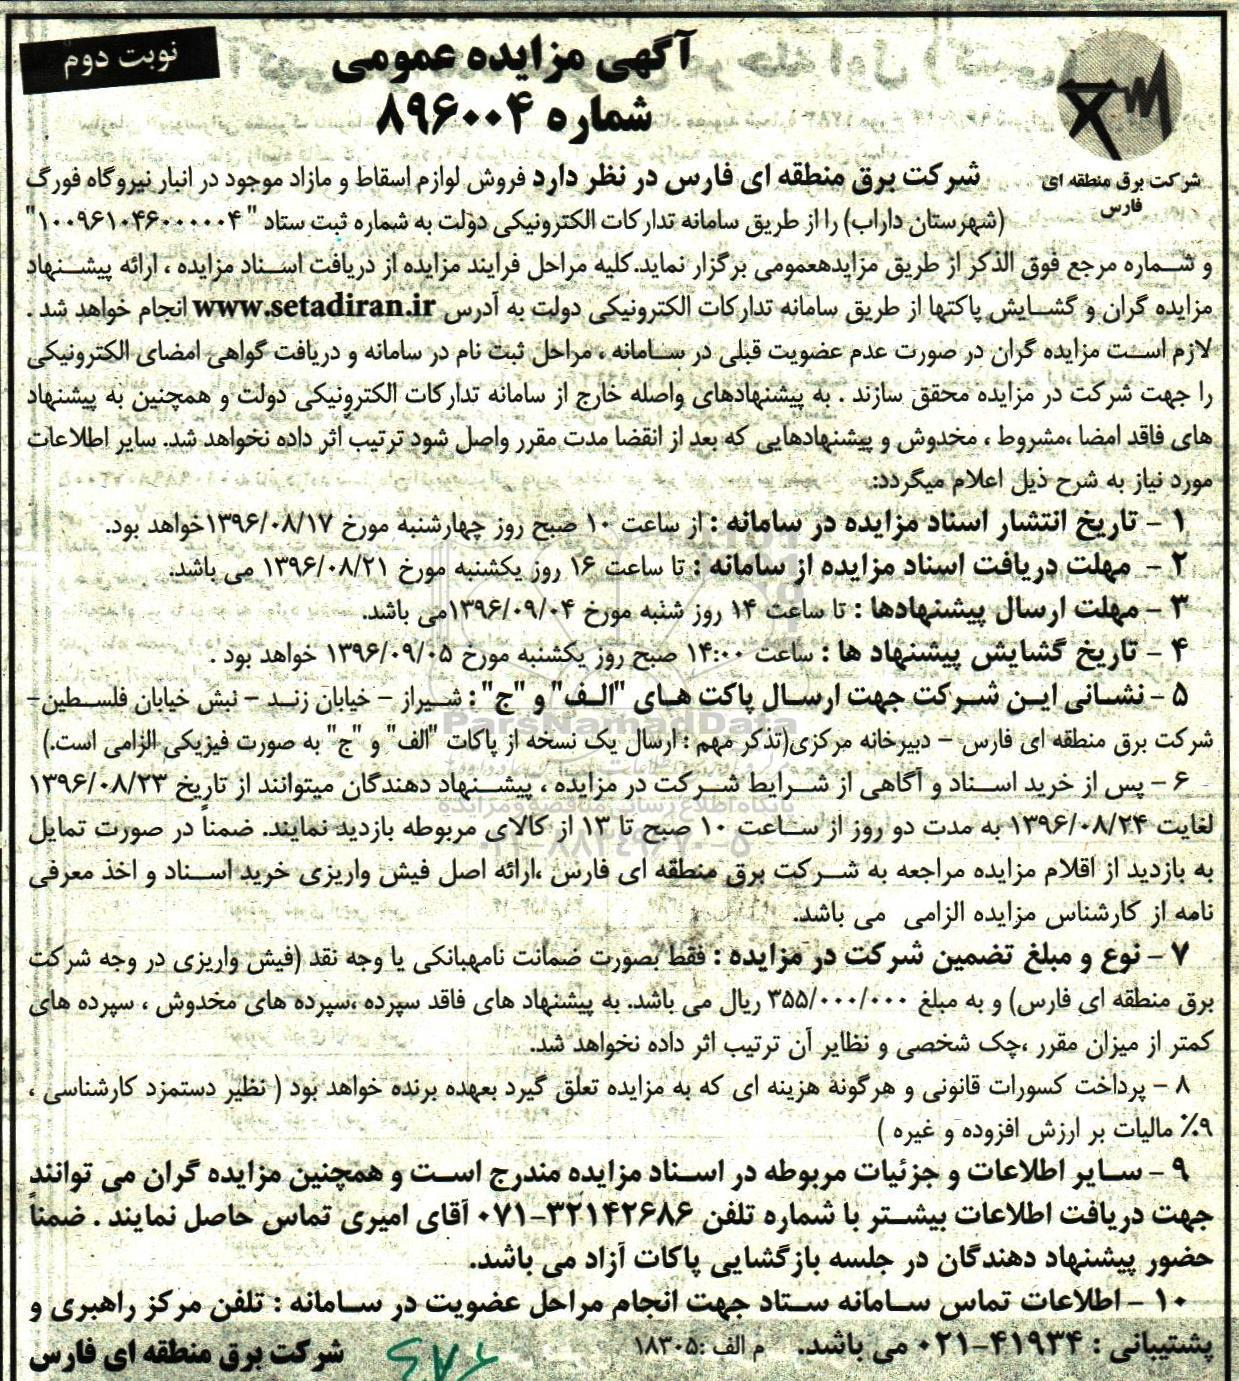 نوبت دوم
آگهی مزایده عمومی
شماره ۸۹۶۰۰۴
شرکت برق منطقه ای
فارس
شرکت برق منطقه ای فارس در نظر دارد فروش لوازم اسقاط و مازاد موجود در انبار نیروگاه فورگ
(شهرستان داراب) را از طریق سامانه تدارکات الکترونیکی دولت به شماره ثبت ستاد "۱۰۰۹۶۱۰۴۶۰۰۰۰۰۴"
و شماره مرجع فوق الذکر از طریق مزایدهعمومی برگزار نماید.کلیه مراحل فرایند مزایده از دریافت اسناد مزایده ، ارائه پیشنهاد
مزایده گران و گشایش پاکتها از طریق سامانه تدارکات الکترونیکی دولت به آدرس www.setadiran.ir انجام خواهد شد .
لازم است مزایده گران در صورت عدم عضویت قبلی در سامانه ، مراحل ثبت نام در سامانه و دریافت گواهی امضای الکترونیکی
را جهت شرکت در مزایده محقق سازند . به پیشنهادهای واصله خارج از سامانه تدارکات الکترونیکی دولت و همچنین به پیشنهاد
های فاقد امضا ،مشروط ، مخدوش و پیشنهادهایی که بعد از انقضا مدت مقرر واصل شود ترتیب اثر داده نخواهد شد. سایر اطلاعات
مورد نیاز به شرح ذیل اعلام میگردد:
۱ – تاریخ انتشار اسناد مزایده در سامانه : از ساعت ۱۰ صبح روز چهارشنبه مورخ ۱۳۹۶/۰۸/۱۷خواهد بود.
۲ – مهلت دریافت اسناد مزایده از سامانه : تا ساعت ۱۶ روز یکشنبه مورخ ۱۳۹۶/۰۸/۲۱ می باشد.
۳ – مهلت ارسال پیشنهادها : تا ساعت ۱۴ روز شنبه مورخ ۱۳۹۶/۰۹/۰۴می باشد.
۴ – تاریخ گشایش پیشنهاد ها : ساعت ۱۴:۰۰ صبح روز یکشنبه مورخ ۱۳۹۶/۰۹/۰۵ خواهد بود .
۵ – نشانی این شرکت جهت ارسال پاکت های "الف" و "ج" : شیراز – خیابان زند – نبش خیابان فلسطین–
ParsNamadData
شرکت برق منطقه ای فارس – دبیرخانه مرکزی(تذکر مهم : ارسال یک نسخه از پاکات "الف" و "ج" به صورت فیزیکی الزامی است.)
۶ – پس از خرید اسناد و آگاهی از شرایط شرکت در مزایده ، پیشنهاد دهندگان میتوانند از تاریخ ۱۳۹۶/۰۸/۲۳
پایگاه اطلاع رسانی مناقصه و مزایده
لغایت ۱۳۹۶/۰۸/۲۴ به مدت دو روز از ساعت ۱۰ صبح تا ۱۳ از کالای مربوطه بازدید نمایند. ضمناً در صورت تمایل
۰۲۱–۸۸۳۴۹۶۷۰–۵
به بازدید از اقلام مزایده مراجعه به شرکت برق منطقه ای فارس ،ارائه اصل فیش واریزی خرید اسناد و اخذ معرفی
نامه از کارشناس مزایده الزامی می باشد.
۷ – نوع و مبلغ تضمین شرکت در مزایده : فقط بصورت ضمانت نامهبانکی یا وجه نقد (فیش واریزی در وجه شرکت
برق منطقه ای فارس) و به مبلغ ۳۵۵/۰۰۰/۰۰۰ ریال می باشد. به پیشنهاد های فاقد سپرده ،سپرده های مخدوش ، سپرده های
کمتر از میزان مقرر ،چک شخصی و نظایر آن ترتیب اثر داده نخواهد شد.
۸ – پرداخت کسورات قانونی و هرگونه هزینه ای که به مزایده تعلق گیرد بعهده برنده خواهد بود ( نظیر دستمزد کارشناسی ،
۹٪ مالیات بر ارزش افزوده و غیره )
۹ – سایر اطلاعات و جزئیات مربوطه در اسناد مزایده مندرج است و همچنین مزایده گران می توانند
جهت دریافت اطلاعات بیشتر با شماره تلفن ۳۲۱۴۲۶۸۶–۰۷۱ آقای امیری تماس حاصل نمایند . ضمناً
حضور پیشنهاد دهندگان در جلسه بازگشایی پاکات آزاد می باشد.
۱۰ – اطلاعات تماس سامانه ستاد جهت انجام مراحل عضویت در سامانه : تلفن مرکز راهبری و
پشتیبانی : ۴۱۹۳۴–۰۲۱ می باشد. م الف :۱۸۳۰۵
شرکت برق منطقه ای فارس